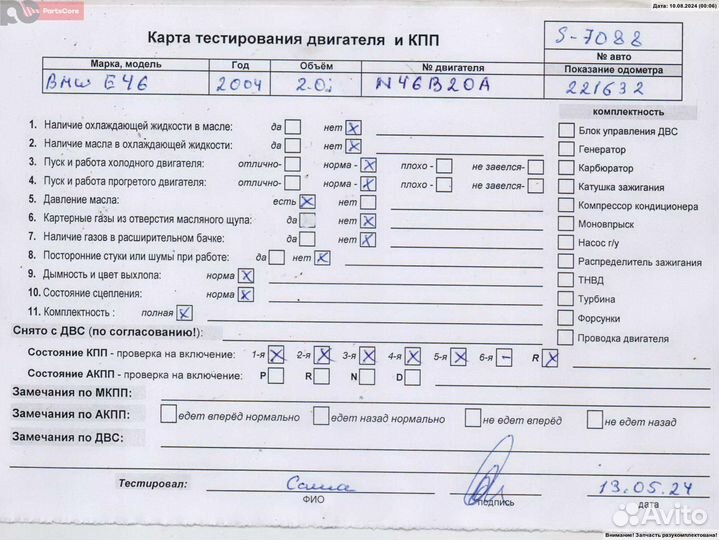 Дата: 10.08.2024 (00:06)
PartsCore
Карта тестирования двигателя и КПП
S-7088
№ авто
Марка, модель Год Объём № двигателя Показание одометра
BMW E46 2004 2.0i N46B20A 221632
комплектность
1. Наличие охлаждающей жидкости в масле: да нет X
2. Наличие масла в охлаждающей жидкости: да нет X
3. Пуск и работа холодного двигателя: отлично- норма - X плохо - не завелся-
4. Пуск и работа прогретого двигателя: отлично- норма - X плохо - не завелся-
5. Давление масла: есть X нет
6. Картерные газы из отверстия масляного щупа: да нет X
7. Наличие газов в расширительном бачке: да нет X
8. Посторонние стуки или шумы при работе: да нет X
9. Дымность и цвет выхлопа: норма X
10. Состояние сцепления: норма X
11. Комплектность : полная X
Блок управления ДВС
Генератор
Карбюратор
Катушка зажигания
Компрессор кондиционера
Моновпрыск
Насос г/у
Распределитель зажигания
ТНВД
Турбина
Форсунки
Проводка двигателя
Снято с ДВС (по согласованию!):
Состояние КПП - проверка на включение: 1-я X 2-я X 3-я X 4-я X 5-я X 6-я - R X
Состояние АКПП - проверка на включение: P R N D
Замечания по МКПП:
Замечания по АКПП: едет вперёд нормально едет назад нормально не едет вперёд не едет назад
Замечания по ДВС:
Тестировал: Саша 13.05.24
ФИО подпись дата
Avito
Внимание! Запчасть разукомплектована!